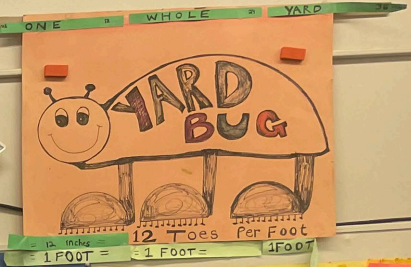 ONE WHOLE YARD
YARD
BUG
12 Toes Per Foot
= 12 inches =
= 1 FOOT = = 1 FOOT = 1 FOOT